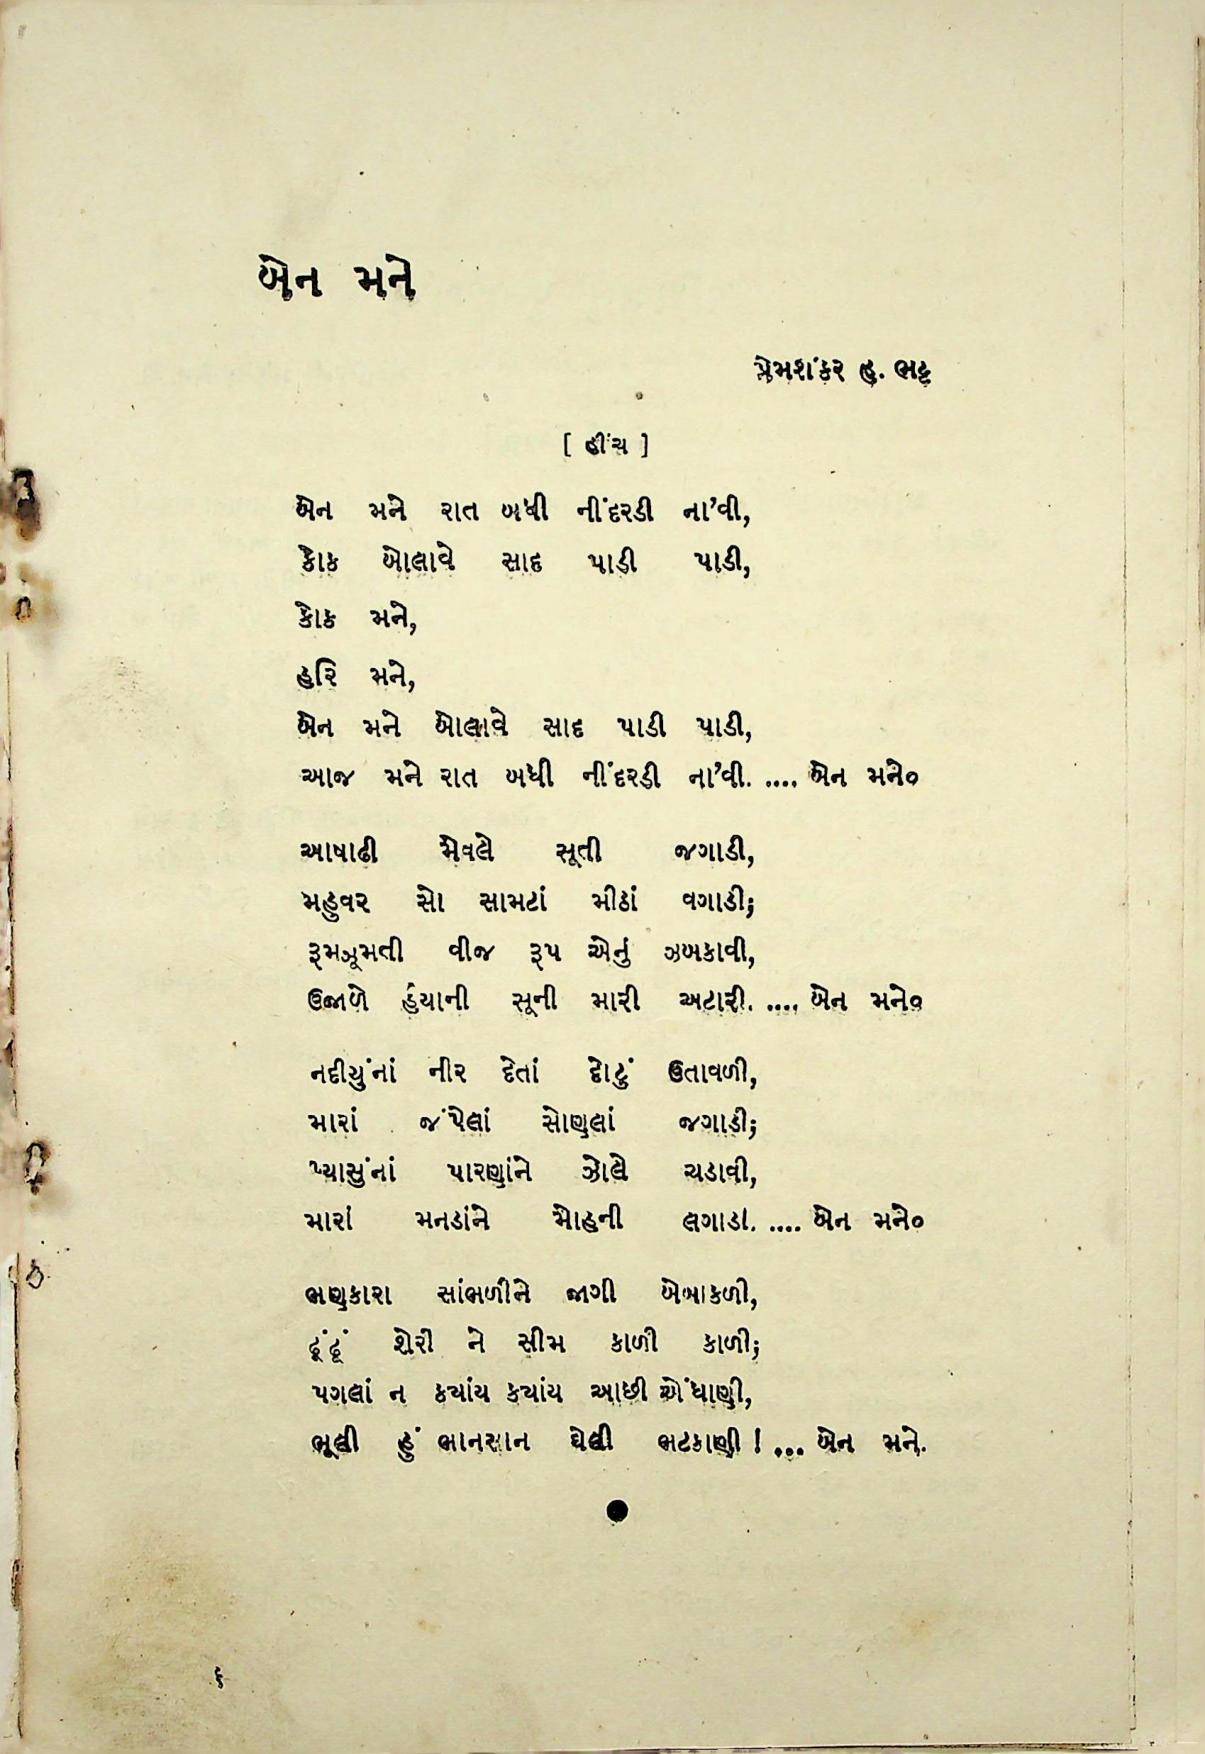 બેન મને
પ્રેમશંકર હ. ભટ્ટ
[ હીંચ ]
બેન મને રાત બધી નીંદરડી ના'વી,
કોક બોલાવે સાદ પાડી પાડી,
કોક મને,
હરિ મને,
બેન મને બોલાવે સાદ પાડી પાડી,
આજ મને રાત બધી નીંદરડી ના'વી. .... બેન મને૦
આષાઢી મેવલે સૂતી જગાડી,
મહુવર સો સામટાં મીઠાં વગાડી;
રૂમઝૂમતી વીજ રૂપ એનું ઝબકાવી,
ઉજાળે હૈયાની સૂની મારી અટારી. .... બેન મને૦
નદીયુંનાં નીર દેતાં દોટું ઉતાવળી,
મારાં જંપેલાં સોણલાં જગાડી;
પ્યાસુંનાં પારણાંને ઝોલે ચડાવી,
મારાં મનડાંને મોહની લગાડી. .... બેન મને૦
ભણકારા સાંભળીને જાગી બેબાકળી,
ઢૂંઢૂં શેરી ને સીમ કાળી કાળી;
પગલાં ન ક્યાંય ક્યાંય આછી એંધાણી,
ભૂલી હું ભાનસાન ઘેલી ભટકાણી ! ... બેન મને.
૬